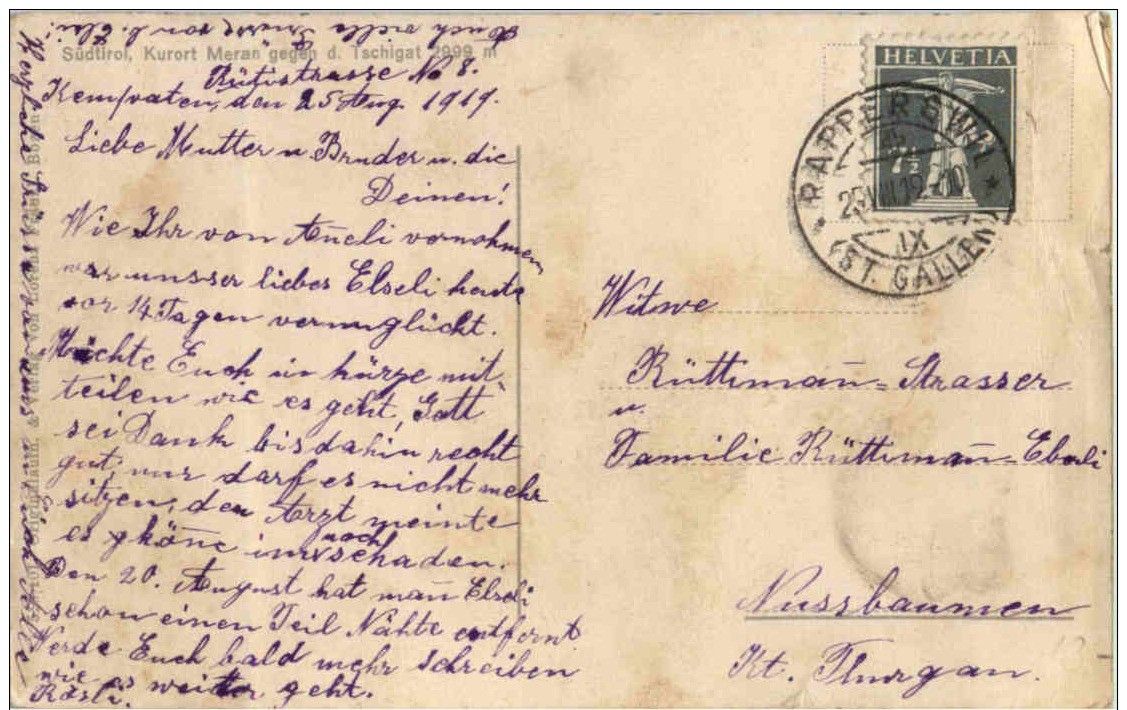 Auch viele Grüsse von b. Elsi!
Südtirol, Kurort Meran gegen d. Tschigat 2999 m
Rütistrasse No 8.
Kempraten, den 25 Aug. 1919.
Liebe Mutter u Bruder u. die
Deinen!
Wie Ihr von Añeli vernohmen,
war unsser liebes Elseli heute
vor 14 Tagen verunglückt.
Möchte Euch in kürze mit,
teilen wie es geht, Gott
sei Dank bis dahin recht
gut, nur darf es nicht mehr
sitzen, den Arzt meinte
es gköñe imr noch schaden.
Den 20. August hat mañ Elseli
schon einen Teil Nähte entfernt
Werde Euch bald mehr schreiben
wie es weiter geht.
Rösli.
Herzliche Grüsse von uns an Euch alle
HELVETIA
7½
RAPPERSWIL
25.VIII.19.-10
IX
(ST. GALLEN)
Witwe
Rüttimañ-Strasser
u.
Familie Rüttimañ-Eberli
Nussbaumen
Kt. Thurgau.